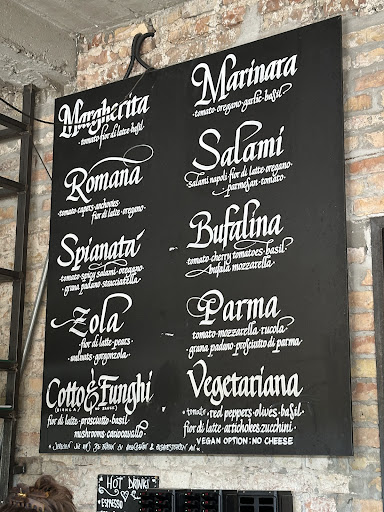 Margherita
tomato·fior di latte·basil
Romana
·tomato·capers·anchovies·
fior di latte·oregano·
Spianata
tomato·spicy salami·oregano·
·grana padano·stracciatella·
Zola
·fior di latte·pears·
·walnuts·gorgonzola·
Cotto & Funghi
(BIANCA/
fior di latte·prosciutto·basil·
mushrooms·caciocavallo·
Marinara
·tomato·oregano·garlic·basil·
Salami
·salami napoli·fior di latte·oregano·
parmesan·tomato·
Bufalina
tomato·cherry tomatoes·basil
·bufala mozzarella·
Parma
tomato·mozzarella·rucola·
grana padano·prosciutto di parma
Vegetariana
·tomato·red peppers·olives·basil·
fior di latte·artichokes·zucchini·
VEGAN OPTION: NO CHEESE
HOT DRINKS
·ESPRESSO